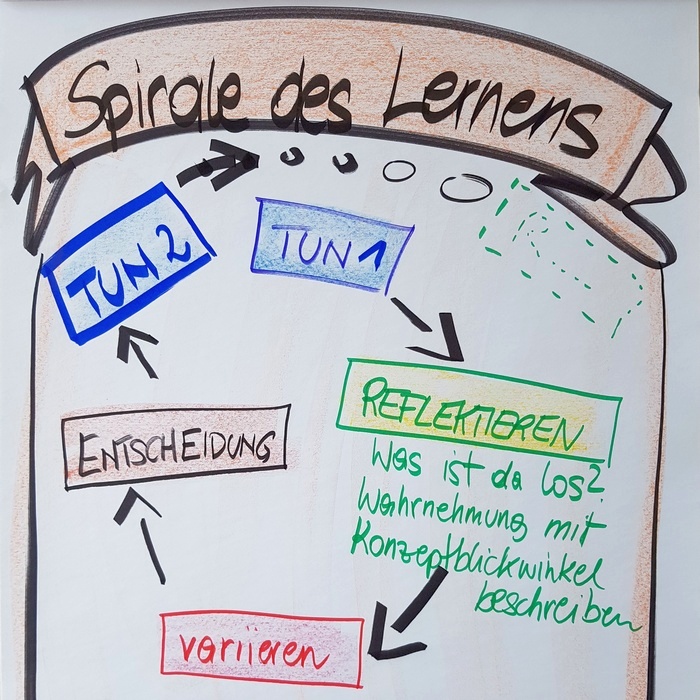 Spirale des Lernens
TUN 1
REFLEKTIEREN
Was ist da los?
Wahrnehmung mit
Konzeptblickwinkel
beschreiben
variieren
ENTSCHEIDUNG
TUN 2